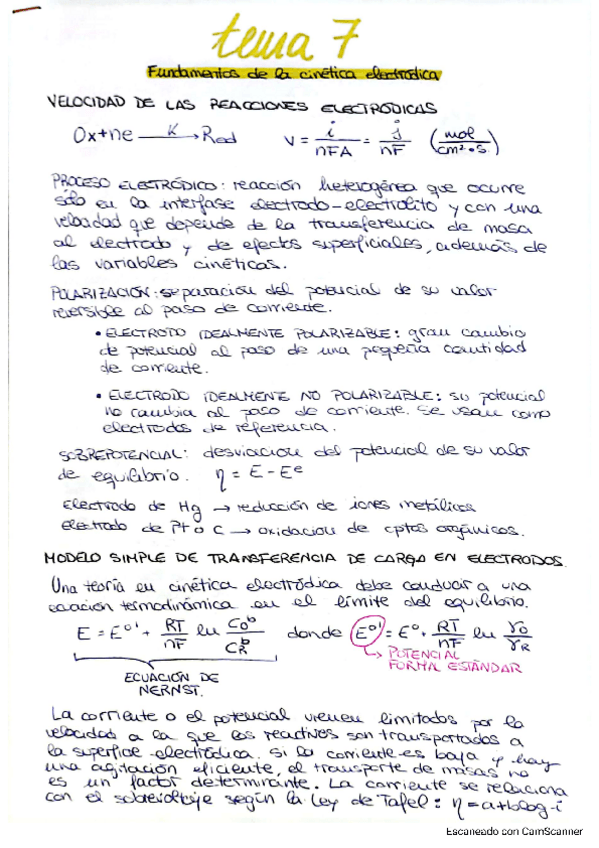 tema 7
Fundamentos de la cinética electródica
VELOCIDAD DE LAS REACCIONES ELECTRÓDICAS
Ox + ne —K→ Red    v = i/nFA = j/nF (mol/cm²·s)
PROCESO ELECTRÓDICO: reacción heterogénea que ocurre
sólo en la interfase electrodo-electrolito y con una
velocidad que depende de la transferencia de masa
al electrodo y de efectos superficiales, además de
las variables cinéticas.
POLARIZACIÓN: separación del potencial de su valor
reversible al paso de corriente.
• ELECTRODO IDEALMENTE POLARIZABLE: gran cambio
de potencial al paso de una pequeña cantidad
de corriente.
• ELECTRODO IDEALMENTE NO POLARIZABLE: su potencial
no cambia al paso de corriente. Se usan como
electrodos de referencia.
SOBREPOTENCIAL: desviación del potencial de su valor
de equilibrio. η = E - Eᵉ
Electrodo de Hg → reducción de iones metálicos
Electrodo de Pt o C → oxidación de cptos orgánicos.
MODELO SIMPLE DE TRANSFERENCIA DE CARGA EN ELECTRODOS
Una teoría en cinética electródica debe conducir a una
ecuación termodinámica en el límite del equilibrio.
E = E⁰' + RT/nF ln C₀ᵇ/C_Rᵇ donde E⁰' = E⁰ + RT/nF ln γ₀/γ_R
↳ POTENCIAL
FORMAL ESTÁNDAR
ECUACIÓN DE
NERNST.
La corriente o el potencial vienen limitados por la
velocidad a la que los reactivos son transportados a
la superficie electródica. Si la corriente es baja y hay
una agitación eficiente, el transporte de masas no
es un factor determinante. La corriente se relaciona
con el sobrevoltaje según la Ley de Tafel: η = a + b log i
Escaneado con CamScanner